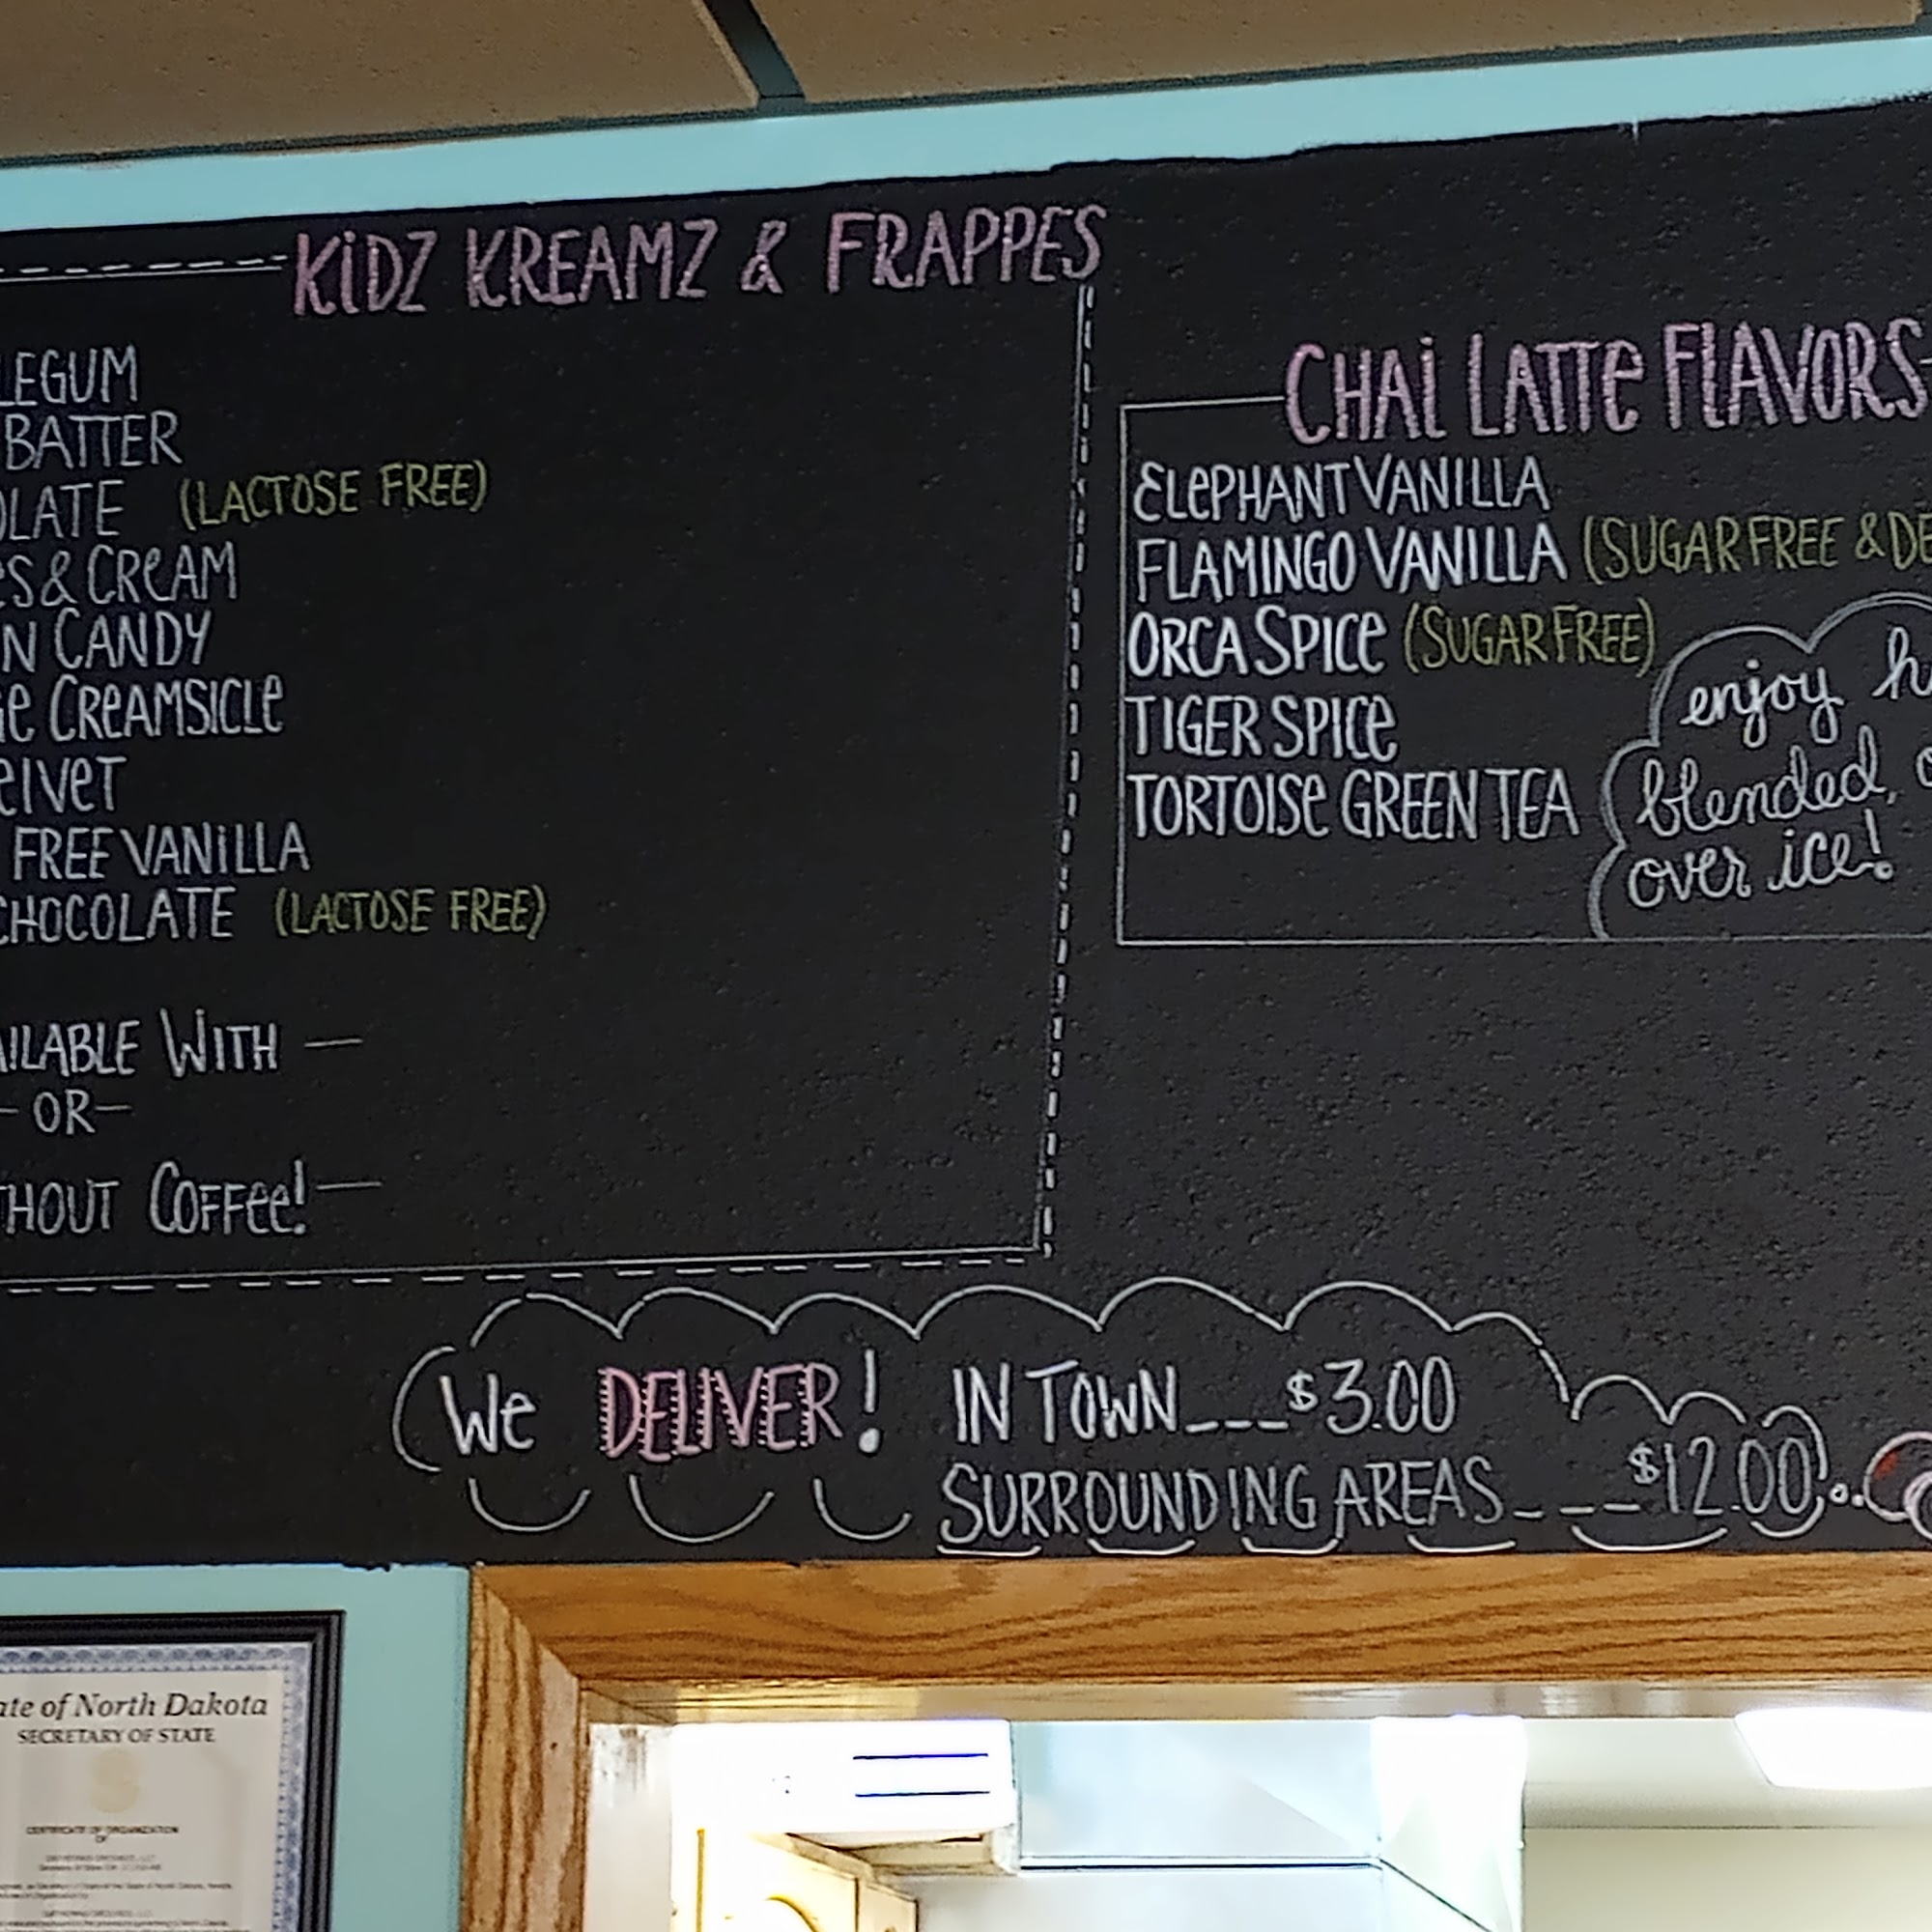 KiDZ KREAMZ & FRAPPES
LEGUM
BATTER
OLATE (LACTOSE FREE)
eS & CReAM
N CANDY
Ge CReAMSICLe
elVeT
FREE VANiLLA
CHOCOLATE (LACTOSE FREE)
AILABLE WiTH —
— OR —
THOUT COFFee! —
CHAi LATTe FLAVORS
ELePHANT VANILLA
FLAMINGO VANILLA (SUGAR FREE & DE
ORCA SPICe (SUGAR FREE)
TIGER SPICe
TORTOISe GREEN TEA
enjoy h
blended, o
over ice!
We DELIVER! IN TOWN___$3.00
SURROUNDING AREAS____$12.00
ate of North Dakota
SECRETARY OF STATE
CERTIFICATE OF ORGANIZATION
OF